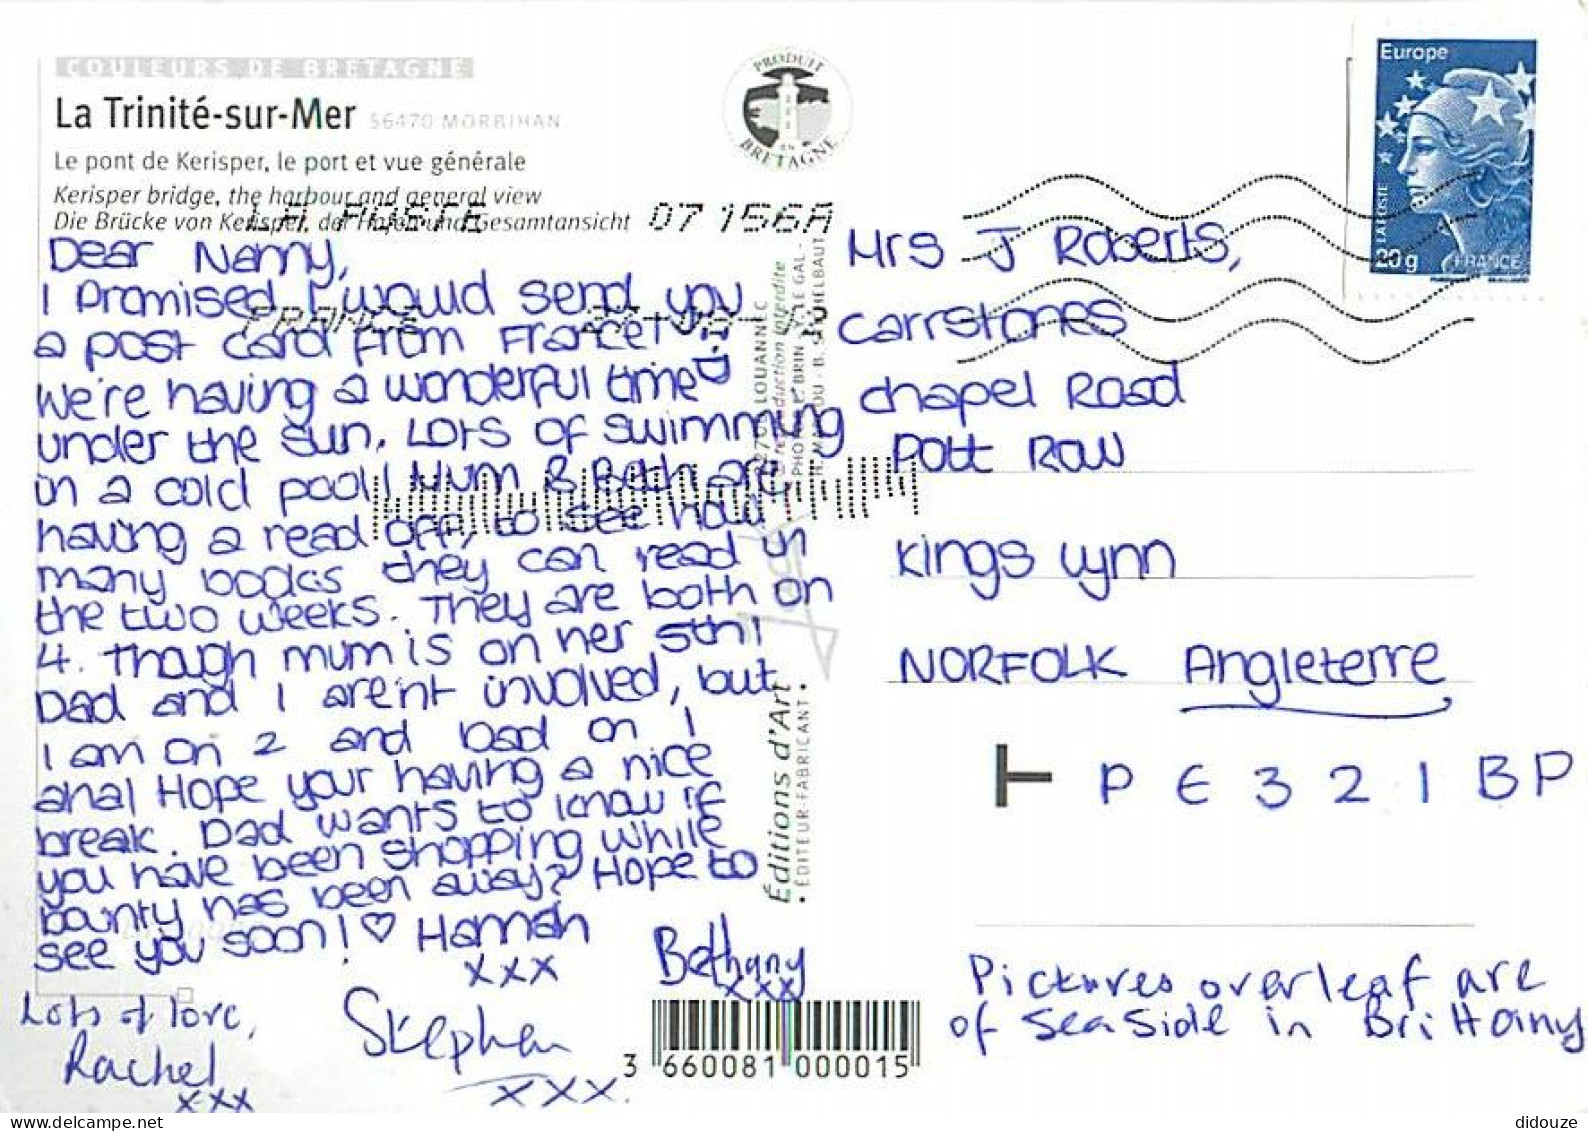 COULEURS DE BRETAGNE
La Trinité-sur-Mer 56470 MORBIHAN
Le pont de Kerisper, le port et vue générale
Kerisper bridge, the harbour and general view
Die Brücke von Kerisper, der Hafen und Gesamtansicht
LA POSTE 07 156A
FRANCE
PRODUIT
EN
BRETAGNE
Europe
LA POSTE
20g FRANCE
Dear Nanny,
I promised I would send you
a post card from France!
We're having a wonderful time
under the sun. Lots of swimming
in a cold pool! Mum & Beth are
having a read off, to see how
many books they can read in
the two weeks. They are both on
4. Though mum is on her 5th!
Dad and I are'nt involved, but
I am on 2 and Dad on 1
aha! Hope your having a nice
break. Dad wants to know if
you have been shopping while
bounty has been away? Hope to
see you soon! ♡ Hannah
xxx
Bethany
xxx
Lots of love,
Rachel
xxx
Stephen
xxx.
Mrs J Roberts,
Carrstones
Chapel Road
Pott Row
Kings Lynn
NORFOLK Angleterre
PE32 1BP
Pictures overleaf are
of seaside in Brittany
Éditions d'Art
• ÉDITEUR-FABRICANT •
LOUANNEC
3 660081 000015
didouze